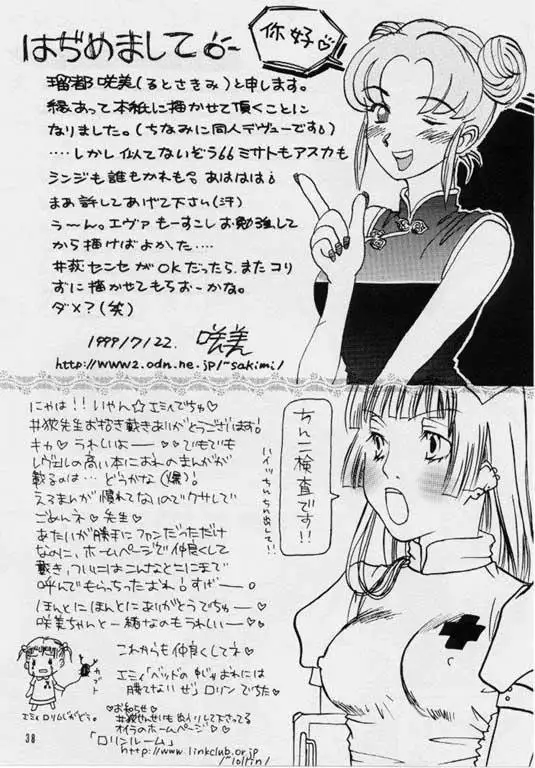 はぢめまして
你好♡
瑠都咲美(るとさきみ)と申します。
縁あって本紙に描かせて頂くことに
なりました。(ちなみに同人デヴューです
‥‥しかし似てないぞう ミサトもアスカも
シンジも誰もかれも。あははは
まあ許してあげて下さい(汗)
う〜ん。エヴァもーすこしお勉強して
から描けばよかった‥‥
井荻センセがOKだったら、またコリ
ずに描かせてもらおーかな。
ダメ?(笑)
1999/7/22. 咲美
http://www2.odn.ne.jp/~sakimi/
にゃは!!いやん☆エミィでちゅ♡
先生お招き戴きありがとうございます!
キャ♡うれしいよー♡♡でもでも
レヴェルの高い本におれのまんがが
載るのは…どうかな(爆)!
えろまんが慣れてないのでクサしてて
ごめんネ♡先生♡
あたいが勝手にファンだっただけ
なのに、ホームページで仲良くして
戴き、ついにはこんなとこにまで
呼んでもらっちったおれ!すげー!
ほんとにほんとにありがとうでちゅー♡
咲美ちゃんと一緒なのもうれしいー♡
これからも仲良くしてネ♡
エミィ「ベッドの
勝てないぜ」ロリンでちた♡
♡お知らせ♡
オイラのホームページ♡♡
「ロリンルーム」
http://www.linkclub.or.jp
/~lollin/
ちんこ検査です!!
38